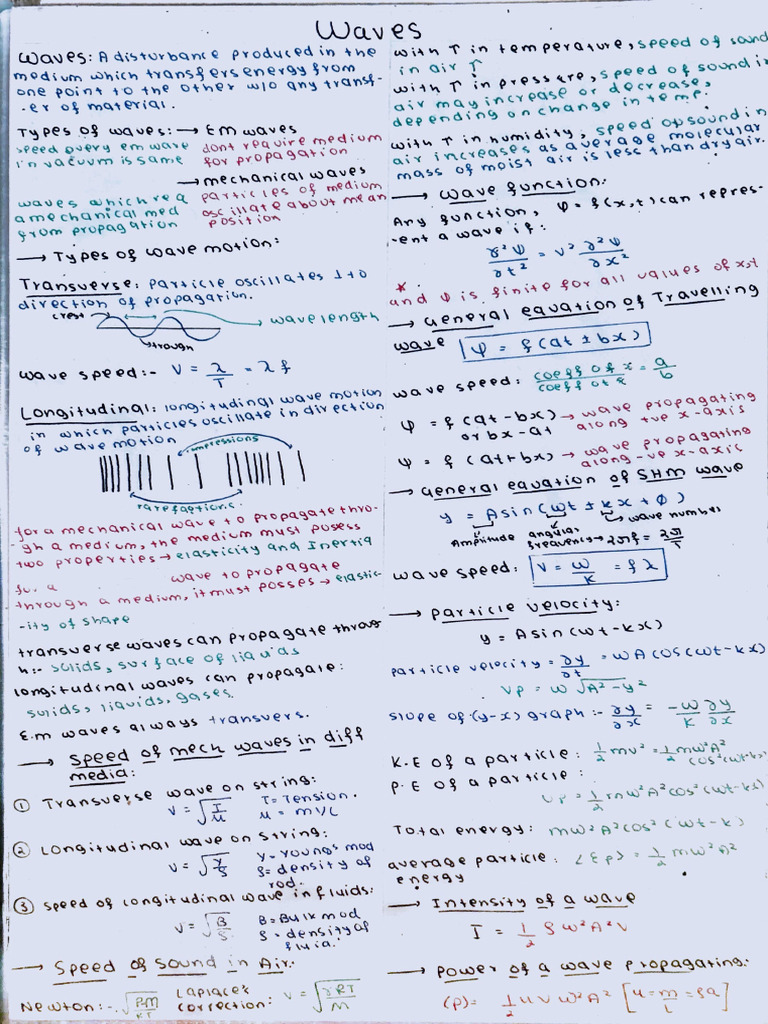 Waves
Waves: A disturbance produced in the
medium which transfers energy from
one point to the other w/o any transf-
-er of material.
Types of waves: → EM waves
speed every em wave dont require medium
in vacuum is same for propagation
→ mechanical waves
waves which req particles of medium
a mechanical med oscillate about mean
from propagation position
→ Types of wave motion:
Transverse: Particle oscillates ⊥ to
direction of propagation.
crest
wavelength
trough
wave speed:- V = λ/T = λf
Longitudinal: longitudinal wave motion
in which particles oscillate in direction
of wave motion
compressions
rarefactions
for a mechanical wave to propagate thro-
-gh a medium, the medium must posess
two properties → elasticity and Inertia
wave to propagate
through a medium, it must posses → elastic-
-ity of shape
transverse waves can propagate throug
h:- solids, surface of liquids
longitudinal waves can propagate:
solids, liquids, gases.
E.m waves always transvers.
→ Speed of mech waves in diff
media:
① Transverse wave on string:
V = √T/μ T = Tension.
μ = m/L
② Longitudinal wave on string:
V = √Y/ρ Y = Youngs mod
ρ = density of
rod.
③ Speed of longitudinal wave in fluids:
V = √B/ρ B = Bulk mod
ρ = density of
fluid.
→ Speed of Sound in Air:
Newton:- Laplace's
correction: V = √γRT/M
with ↑ in temperature, speed of sound
in air ↑
with ↑ in pressure, speed of sound in
air may increase or decrease,
depending on change in temp.
with ↑ in humidity, speed of sound in
air increases as average molecular
mass of moist air is less than dry air.
→ Wave function:
Any function, ψ = f(x,t) can repres-
-ent a wave if:
∂²ψ/∂t² = v² ∂²ψ/∂x²
* and ψ is finite for all values of x,t
→ General equation of Travelling
wave ψ = f(at ± bx)
wave speed: coeff of x/coeff of t = a/b
ψ = f(at - bx) → wave propagating
or bx - at along +ve x-axis
ψ = f(at + bx) → wave propagating
along -ve x-axis
→ General equation of SHM wave
y = A sin(ωt ± kx + φ)
Amplitude angular wave number
frequency → 2πf = 2π/T
wave speed: V = ω/K = fλ
→ particle velocity:
y = A sin(ωt - kx)
particle velocity = ∂y/∂t = ωA cos(ωt - kx)
Vp = ω√A² - y²
slope of (y-x) graph:- ∂y/∂x = -ω/K ∂y/∂x
K.E of a particle: 1/2 mv² = 1/2 mω²A²
cos²(ωt - kx)
P.E of a particle:
Up = 1/2 mω²A² cos²(ωt - kx)
Total energy: mω²A² cos²(ωt - k)
average particle: <Ep> = 1/2 mω²A²
energy
→ Intensity of a wave
I = 1/2 ρω²A²V
→ Power of a wave propagating:
(P) = 1/2 μVω²A² [μ = m/L = ρa]